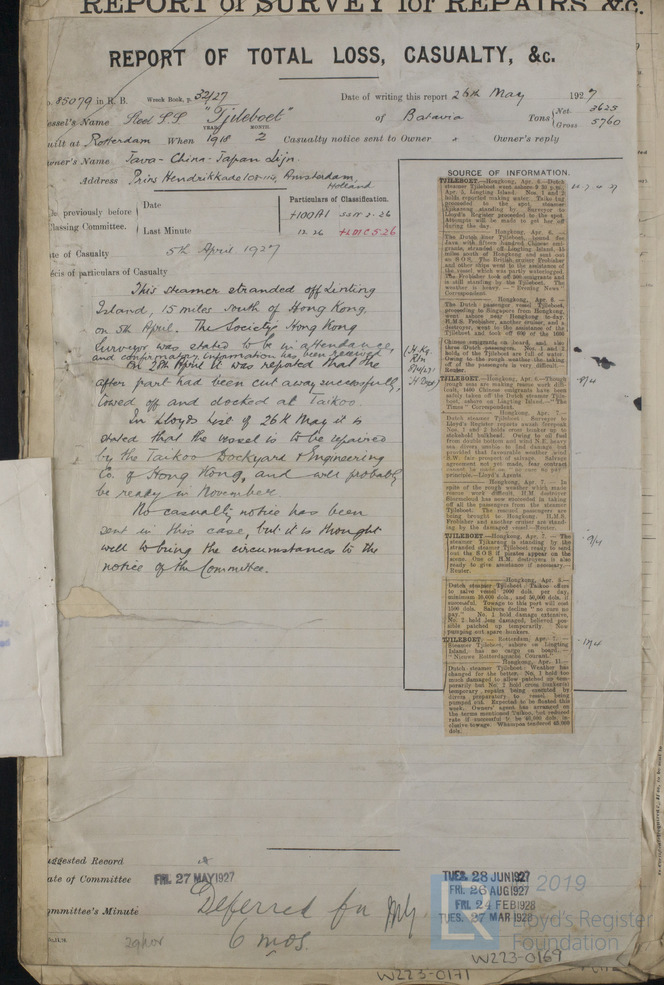 REPORT of SURVEY for REPAIRS, &c.
REPORT OF TOTAL LOSS, CASUALTY, &c.
o. 85079 in R. B. Wreck Book, p. 32/27 Date of writing this report 26th May 1927
essel's Name Steel S.S. "Tjileboet" of Batavia Tons { Net 3625 Gross 5760
uilt at Rotterdam When YEAR 1918 MONTH 2 Casualty notice sent to Owner Owner's reply
wner's Name Java-China-Japan Lijn
Address Prins Hendrikkade 108-114, Amsterdam, Holland
previously before Classing Committee. Date
Last Minute
Particulars of Classification.
+100A1 SSN°2.26
12.26 +LMC 5.26
te of Casualty 5th April 1927
cis of particulars of Casualty
This steamer stranded off Linting
Island, 15 miles south of Hong Kong,
on 5th April. The Society's Hong Kong
Surveyor was stated to be in attendance,
and confirmatory information has been received.
On 28th April it was reported that the
after part had been cut away successfully,
towed off and docked at Taikoo.
In Lloyds List of 26th May it is
stated that the vessel is to be repaired
by the Taikoo Dockyard & Engineering
Co. of Hong Kong, and will probably
be ready in November.
No casualty notice has been
sent in this case, but it is thought
well to bring the circumstances to the
notice of the Committee.
SOURCE OF INFORMATION.
TJILEBOET.—Hongkong, Apr. 6.—Dutch
steamer Tjileboet went ashore
Apr. 5, Lingting Island. Nos. 1 and 2
holds reported making water. Taiko tug
proceeded to the spot, steamer
standing by. Surveyor to
Lloyd's Register proceeded to the spot.
Attempts will be made to get her off
during the day.
Hongkong, Apr. 6.—
The Dutch liner Tjileboet, bound for
Java, with fifteen hundred Chinese emi-
grants, stranded off Lingting Island, 15
miles south of Hongkong and sent out
an S O S. The British cruiser Frobisher
and other ships went to the assistance of
the vessel, which was partly submerged.
The Frobisher took off 500 emigrants and
is still standing by the Tjileboet. The
weather is heavy.—"Evening News"
Correspondent.
Hongkong, Apr. 6.—
The Dutch passenger vessel Tjileboet,
proceeding to Singapore from Hongkong,
went ashore near Hongkong to-day.
H.M.S. Frobisher, another cruiser, and a
destroyer, went to the assistance of the
Tjileboet, and took off 600 of the 1600
Chinese emigrants on board, and also
three Dutch passengers. Nos. 1 and 2
holds of the Tjileboet are full of water.
Owing to the rough weather the taking
off of the passengers is very difficult.—
Reuter.
TJILEBOET.—Hongkong, Apr. 6.—Though
rough seas are making rescue work diffi-
cult, 1400 Chinese emigrants have been
safely taken off the Dutch steamer Tjile-
boet, ashore on Lingting Island.—"The
Times" Correspondent.
Hongkong, Apr. 7.—
Dutch steamer Tjileboet: Surveyor to
Lloyd's Register reports awash forepart.
principle.—Lloyd's Agents
Hongkong, Apr. 7.—In
spite of the rough weather which made
rescue work difficult, H.M. destroyer
has now succeeded in taking
off all the passengers from the steamer
Tjileboet. The rescued passengers are
being brought to Hongkong. H.M.S.
Frobisher and another cruiser are stand-
ing by the damaged vessel.—Reuter.
TJILEBOET.—Hongkong, Apr. 7.—The
steamer Tjikarang is standing by the
stranded steamer Tjileboet ready to send
out the S O S if pirates appear on the
scene. One of H.M. destroyers is also
ready to give assistance if necessary.—
Reuter.
Hongkong, Apr. 8.—
Dutch steamer Tjileboet: Taikoo offers
to salve vessel 2000 dols. per day,
minimum 20,000 dols. and 50,000 dols. if
successful. Towage to this port will cost
1500 dols. Salvors decline "no cure no
pay." No. 1 hold damage extensive,
No. 2 hold less damaged, believed pos-
sible patched up temporarily. Now
pumping out spare bunkers.
TJILEBOET.—Rotterdam, Apr. 7.—
Steamer Tjileboet, ashore on Lingting
Island, has no cargo on board.—
"Nieuwe Rotterdamsche Courant."
Hongkong, Apr. 11.—
Dutch steamer Tjileboet: Weather has
changed for the better. No. 1 hold too
much damaged to allow patched up tem-
porarily but No. 2 hold
temporary repairs being executed by
divers preparatory to vessel being
pumped out. Expected to be floated this
week. Owners' agent has arranged on
the terms mentioned Taikoo, but reduced
rate if successful to be 40,000 dols. in-
clusive towage. Whampoa tendered 45,000
dols.
8/4
9/4
uggested Record
ate of Committee FRI. 27 MAY 1927
ommittee's Minute Deferred for
6 mos.
TUES. 28 JUN 1927
FRI. 26 AUG 1927
FRI. 24 FEB 1928
TUES. 27 MAR 1928
© 2019
Lloyd's Register
Foundation
W223-0169
W223-0171